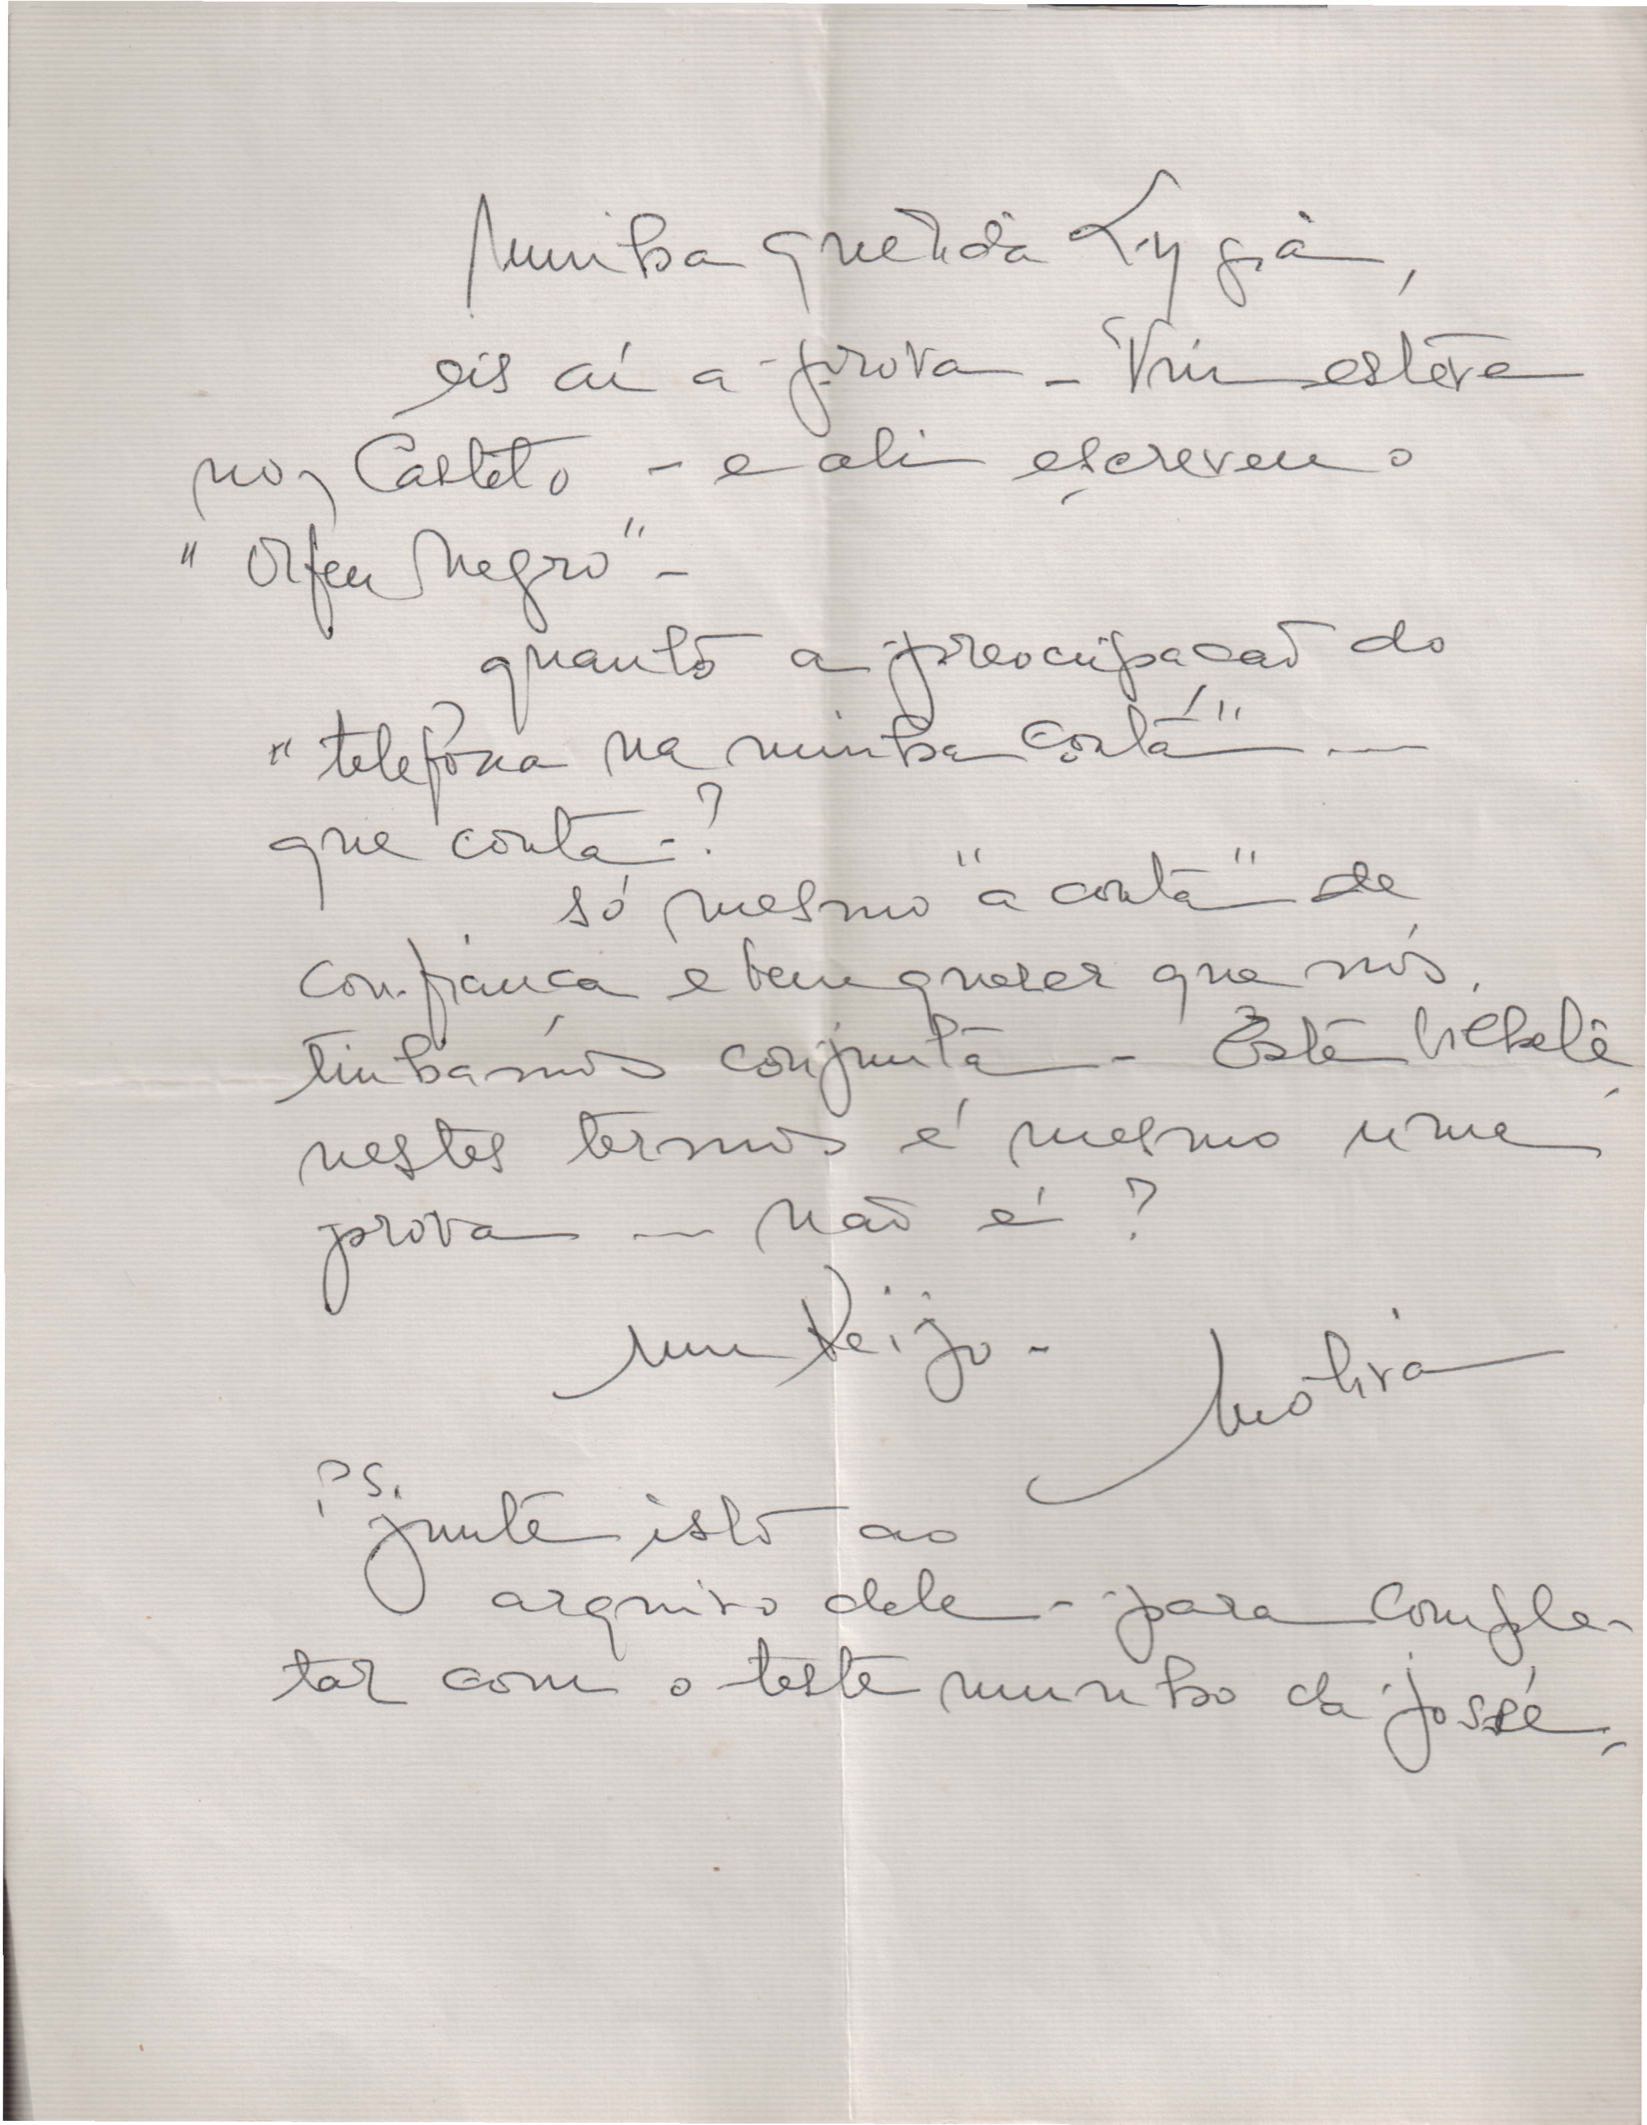 Minha querida Lygia,
eis aí a prova - Vini esteve
no Castelo - e ali escreveu o
"Orfeu Negro" -
quanto a preocupação do
"telefona na minha conta!" —
que conta - ?
só mesmo "a conta" de
confiança e bem querer que nós
tinhamos conjunta - Este bilhete
nestes termos é mesmo uma
prova — não é ?
um beijo -
P.S.
junte isto ao
arquivo dele - para comple-
tar com o testemunho da José,